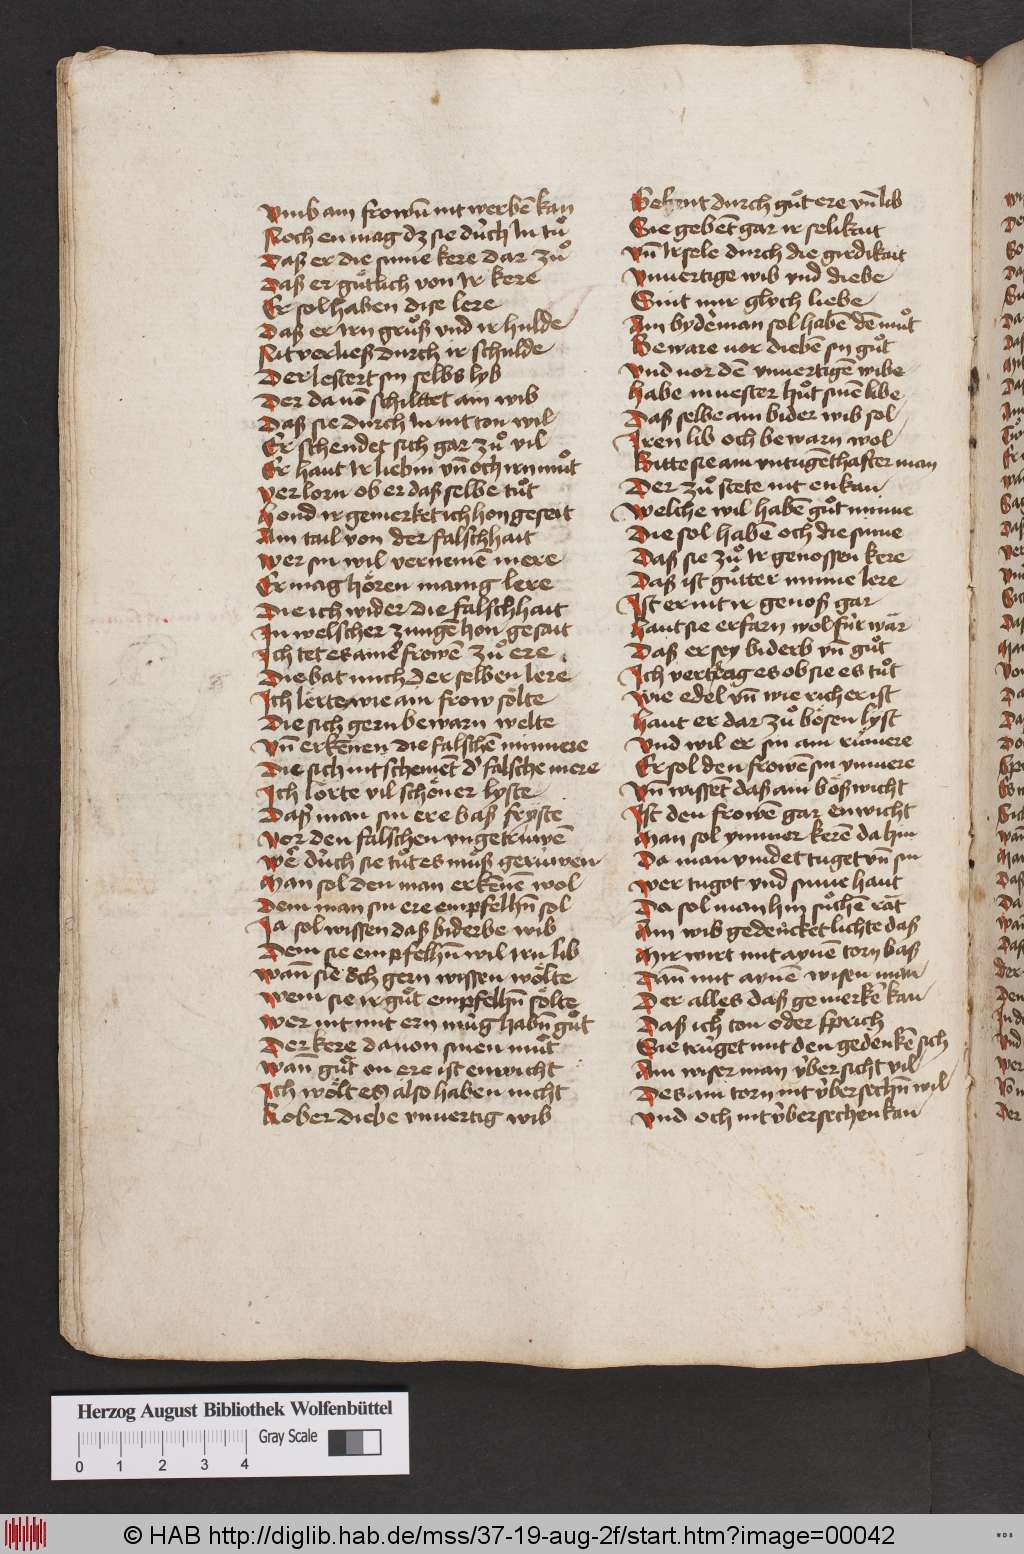 Vmb ain frowū nit werbē kan
Noch en mag dz sie dǔch In tů
Daß er die sinne kere dar zů
Daß er gůtlich von Ir kere
Er sol haben dise lere
Daß er Irn grůß vnd ir hulde
Nit verließ durch ir schulde
Der lestert sin selbs lyb
Der da uō schiltet ain wib
Daß sie durch In nit ton wil
Er schendet sich gar zů vil
Er haut Ir lieb in vn̄ och irn můt
verlorn ob er daß selbe tůt
Hond ir gemerket ich hon geseit
Ain tail von der falschhait
Wer sin wil vernemē mere
Er mag hören manig lere
Die ich wider die falschhait
In welscher zungē hon gesait
Ich tet es ainer frowē zů ere
Die bat mich der selben lere
Ich lerte wie ain frow sölte
Die sich gern bewarn welte
Vn̄ erkēnen die falschē minnere
Die sich nit schemēt d' falsche mere
Ich lörte vil schöner lyste
Daß man sin ere baß fryste
Vor den falschen vngetriuwē
Wē dǔch sie tůt es můß geruwen
Man sol den man erkēnē wol
Dem man sin ere empfelhn̄ sol
Ja sol wissen daß biderbe wib
Dem sie empfelhn̄ wil irn lib
Wan̄ sie och gern wissen wölte
Wem sie ir gůt empfelhn̄ sölte
Wer nit mit ern mǔg habn̄ gůt
Der kere dauon sinen můt
Wan̄ gůt on ere ist enwicht
Ich wölt es also haben nicht
Rober diebe vnuertig wib
Bekent durch gůt ere vn̄ lib
Sie gebēt gar ir selikait
Vn̄ Ir sele durch die girdikait
Vnuertige wib vnd diebe
Sint mir glych liebe
Ain bydērman sol habē dē můt
Beware uor diebē sin gůt
Vnd uor dē vnuertigē wibe
Habe in uester hůt sinē libe
Daß selbe ain bider wib sol
Iren lib och bewarn wol
Bitte sie ain vntugēthafter man
Der zů stete nit en kan
Welche wil habē gůt minne
Die sol habē och die sinne
Daß sie zů Ir genossen kere
Daß ist gůtter minne lere
Ist er nit ir genoß gar
Haut sie erfarn wol fǔr war
Daß er sey biderb vn̄ gůt
Ich vertrag es ob sie es tůt
Wie edel vn̄ wie rich er ist
Haut er dar zů bösen lyst
Vnd wil er sin ain rümere
Er sol den frowē sin vnmere
Vn̄ wissēt daß ain bößwicht
Ist den frowē gar enwicht
Man sol ymmer kerē da hin
Da man vindet tuget vn̄ sin
Wer tugot vnd sinne haut
Da sol man hin sůchē rāt
Ain wib gedencket lichte daß
Mir wirt mit aynē torn baß
Dan̄ mit aynē wisen man
Der alles daß gemerkē kan
Daß ich ton oder sprich
Sie trǔget mit den gedenkē sich
Ain wiser man ǔbersicht vil
Des ain torn nit ǔbersechn̄ wil
Vnd och nit ǔbersechen kan
Herzog August Bibliothek Wolfenbüttel
Gray Scale
0 1 2 3 4
© HAB http://diglib.hab.de/mss/37-19-aug-2f/start.htm?image=00042